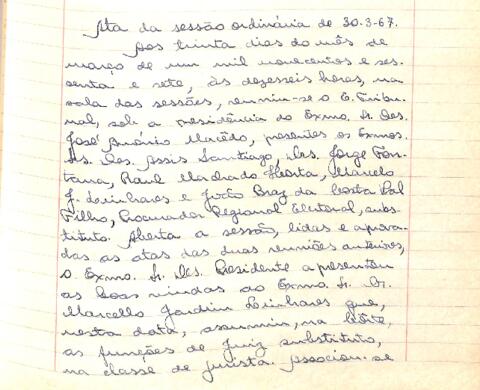 Ata da sessão ordinária de 30.3-67.
Aos trinta dias do mês de
março de um mil novecentos e ses-
senta e sete, às dezesseis horas, na
sala das sessões, reuniu-se o E. Tribu-
nal, sob a presidência do Exmo. Sr. Des.
José Antônio Macêdo, presentes os Exmos.
Srs. Des. Assis Santiago, Drs. Jorge Fon-
tana, Raul Machado Horta, Marcelo
J. Linhares e João Braz da Costa Val
Filho, Procurador Regional Eleitoral, subs-
tituto. Aberta a sessão, lidas e aprova-
das as atas das duas reuniões anteriores,
o Exmo. Sr. Des. Presidente apresentou
as boas vindas ao Exmo. Sr. Dr.
Marcello Jardim Linhares que,
nesta data, assumiu, na Côrte,
as funções de Juiz substituto,
na classe de jurista. Associou-se